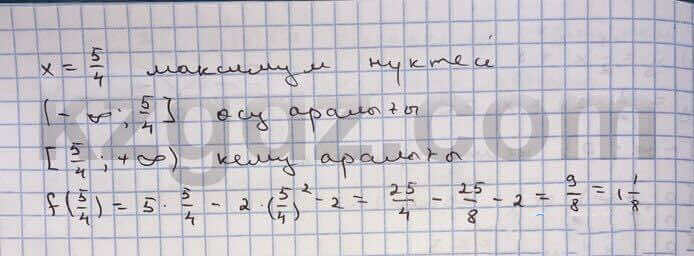 x = 5/4 максимум нүктесі
(-∞; 5/4] өсу аралығы
[5/4; +∞) кему аралығы
f(5/4) = 5 · 5/4 - 2 · (5/4)² - 2 = 25/4 - 25/8 - 2 = 9/8 = 1 1/8
kzgdz.com